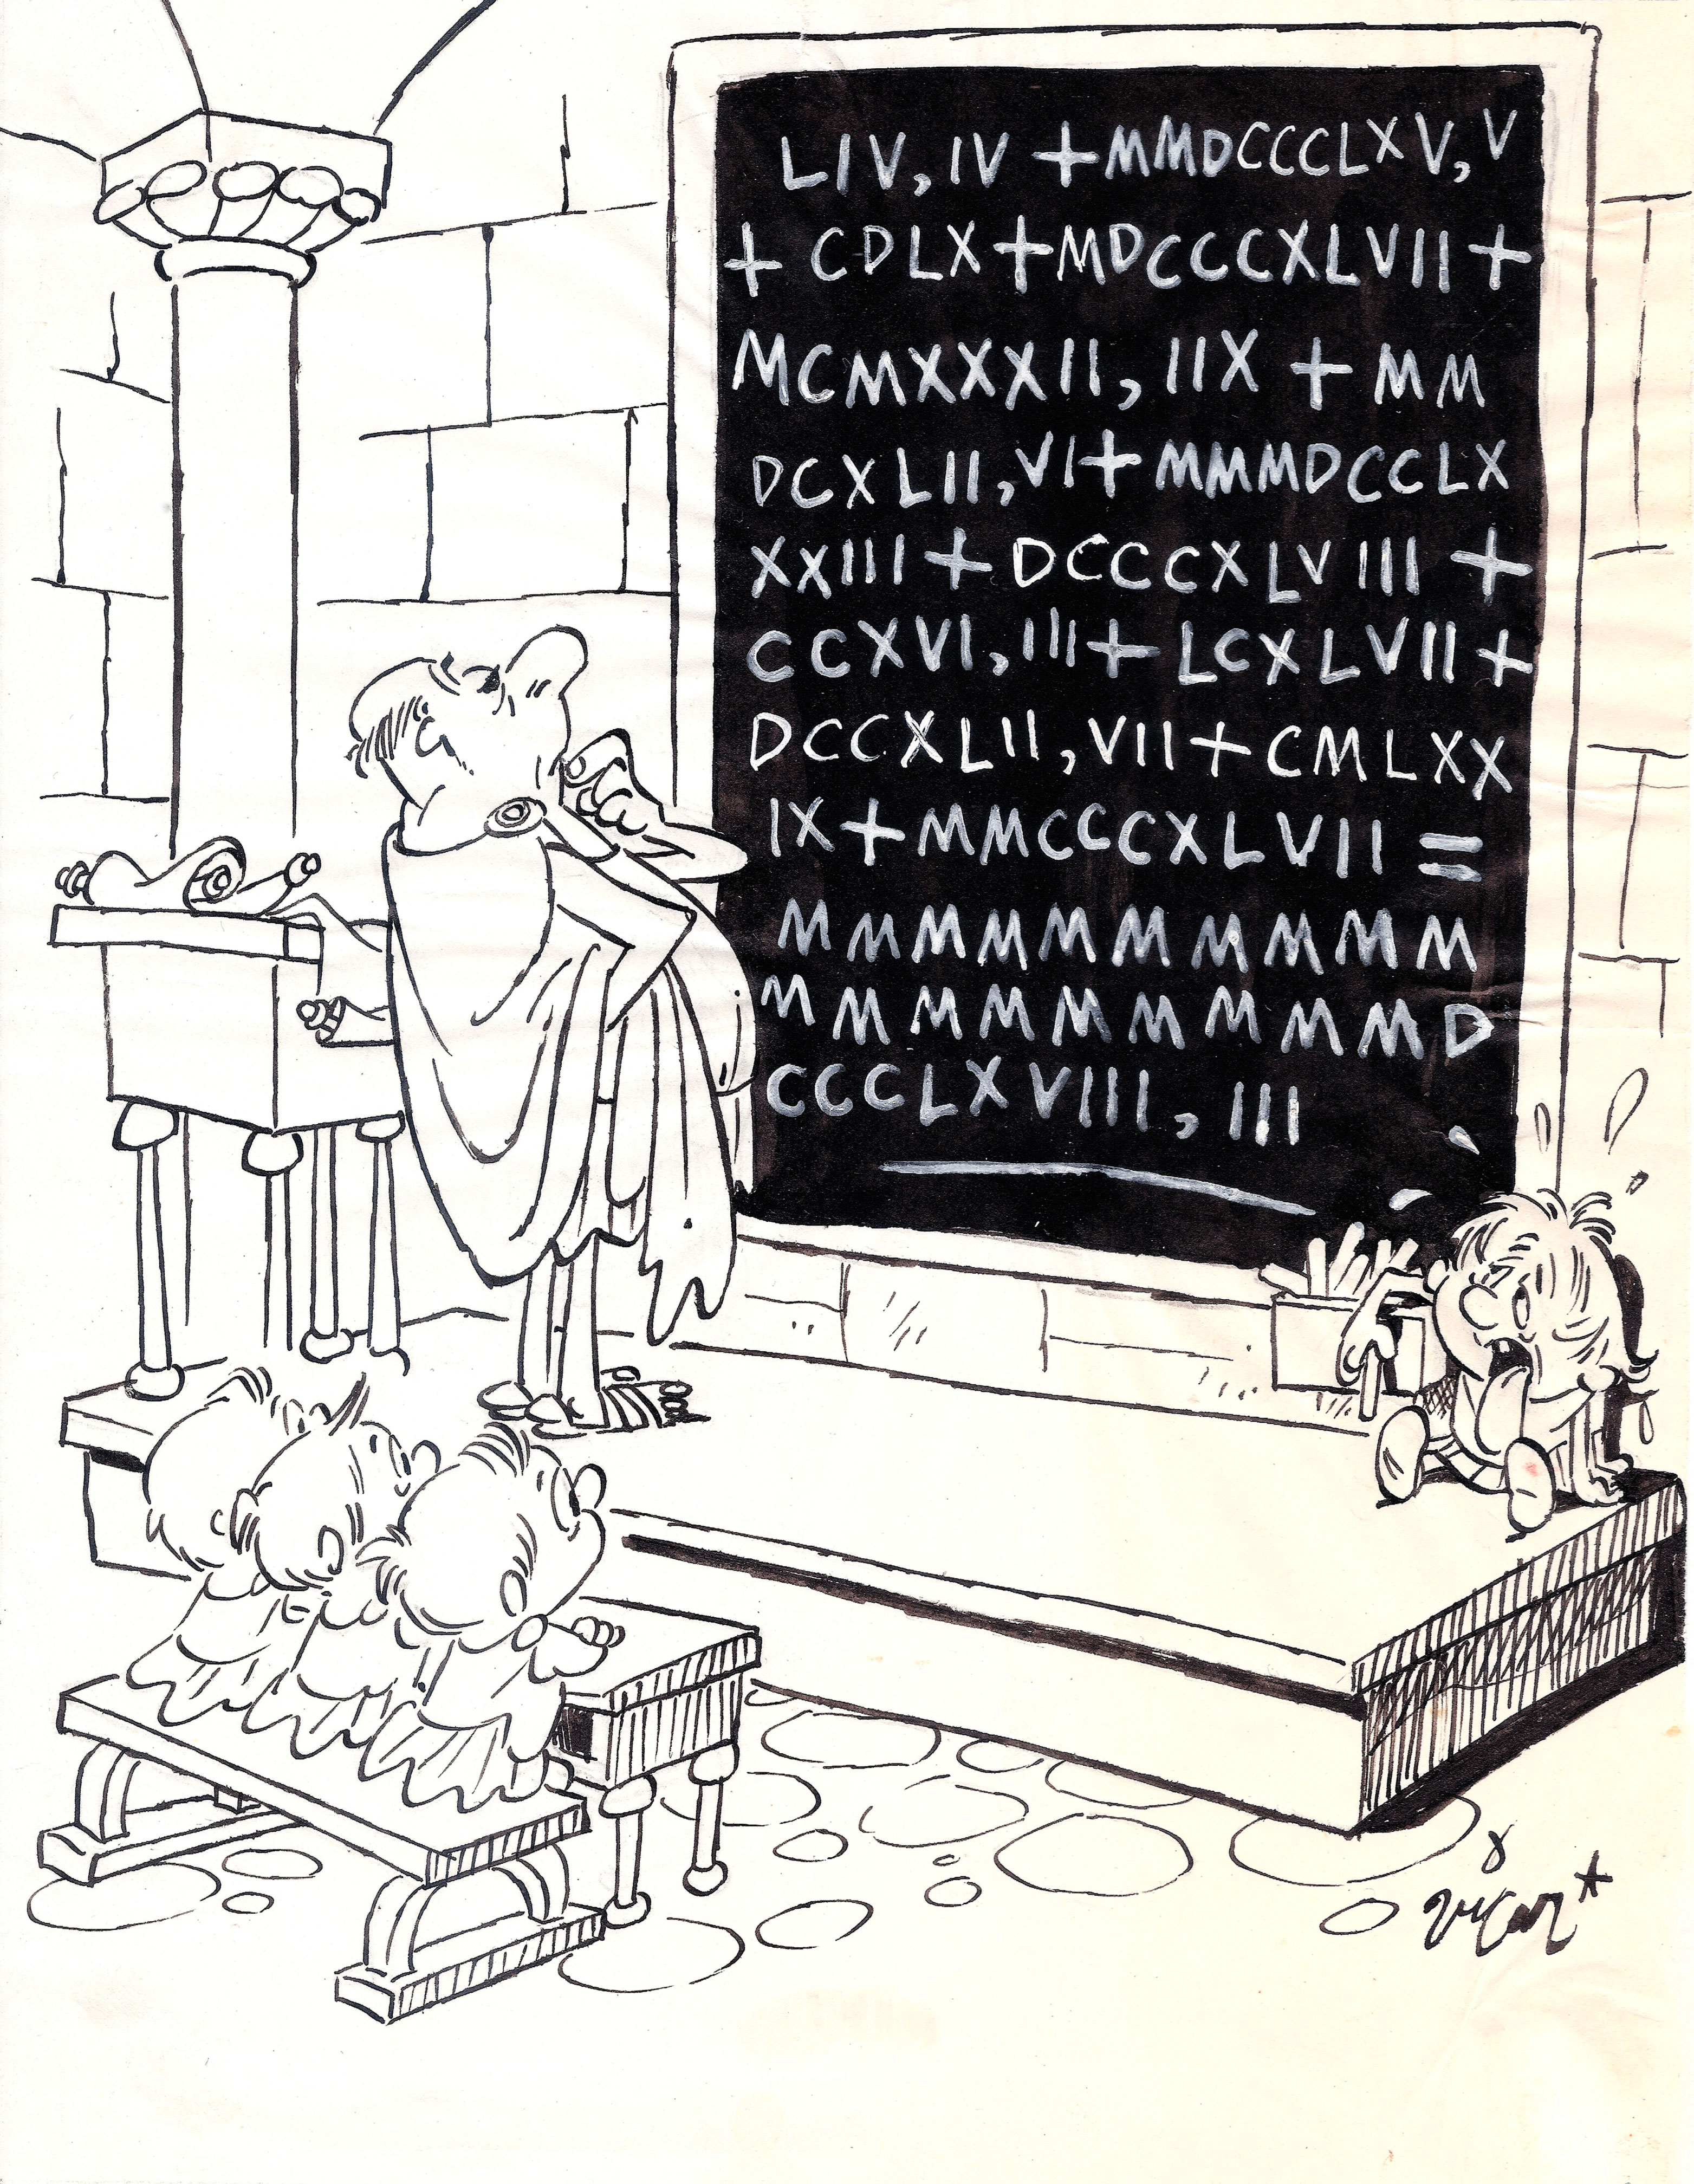 LIV, IV + MMDCCCLXV, V
+ CDLX + MDCCCXLVII +
MCMXXXII, IIX + MM
DCXLII, VI + MMMDCCLX
XXIII + DCCCXLVIII +
CCXVI, III + LCXLVII +
DCCXLII, VII + CMLXX
IX + MMCCCXLVII =
MMMMMMMMMM
MMMMMMMMMD
CCCLXVIII, III